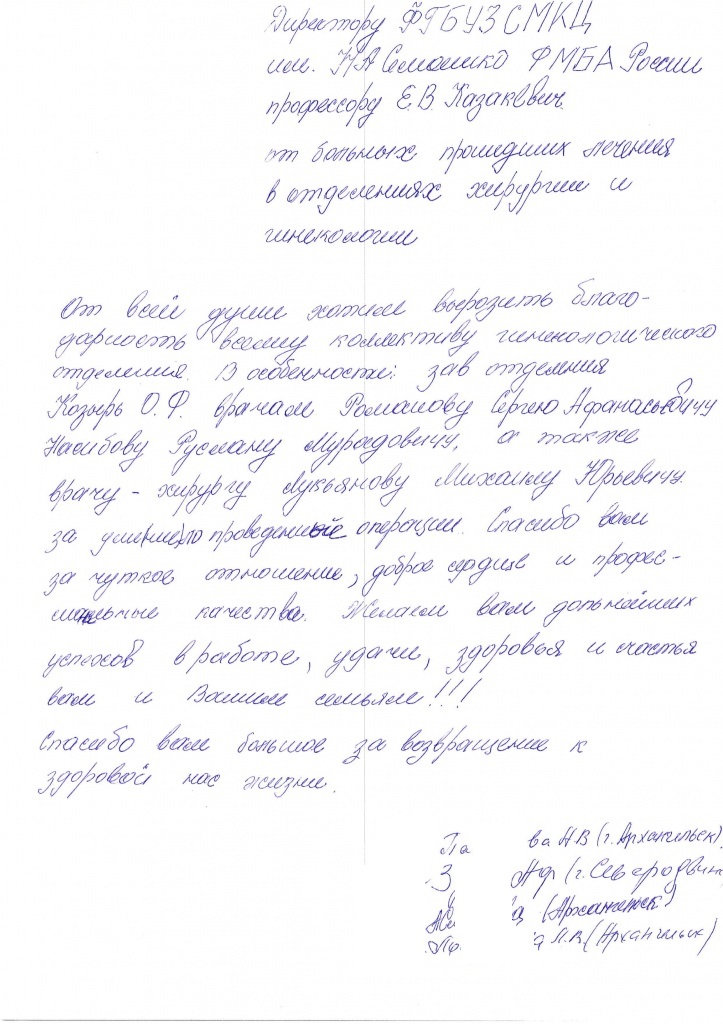 Директору ФГБУЗ СМКЦ
им. НА Семашко ФМБА России
профессору Е.В. Казакевич.
от больных прошедших лечения
в отделениях хирургии и
гинекологии
От всей души хотим вырозить благо-
дарность всему коллективу гинекологического
отделения. В особенности: зав отделения
Козырь О.Ф. врачам Романову Сергею Афанасьевичу
Насибову Руслану Мурадовичу, а также
врачу - хирургу Лукьянову Михаилу Юрьевичу
за проведенные операции. Спасибо вам
за чуткое отношение, доброе сердице и профес-
сиональные качества. Желаем вам дольнейших
успехов в работе, удачи, здоровья и счастья
вам и Вашим семьям!!!
Спасибо вам большое за возвращение к
здоровой нас жизни.
Па ва Н В (г. Архангельск).
З (г. Северодвинск
(Архангельск)
а Л.В. (Архангельск)